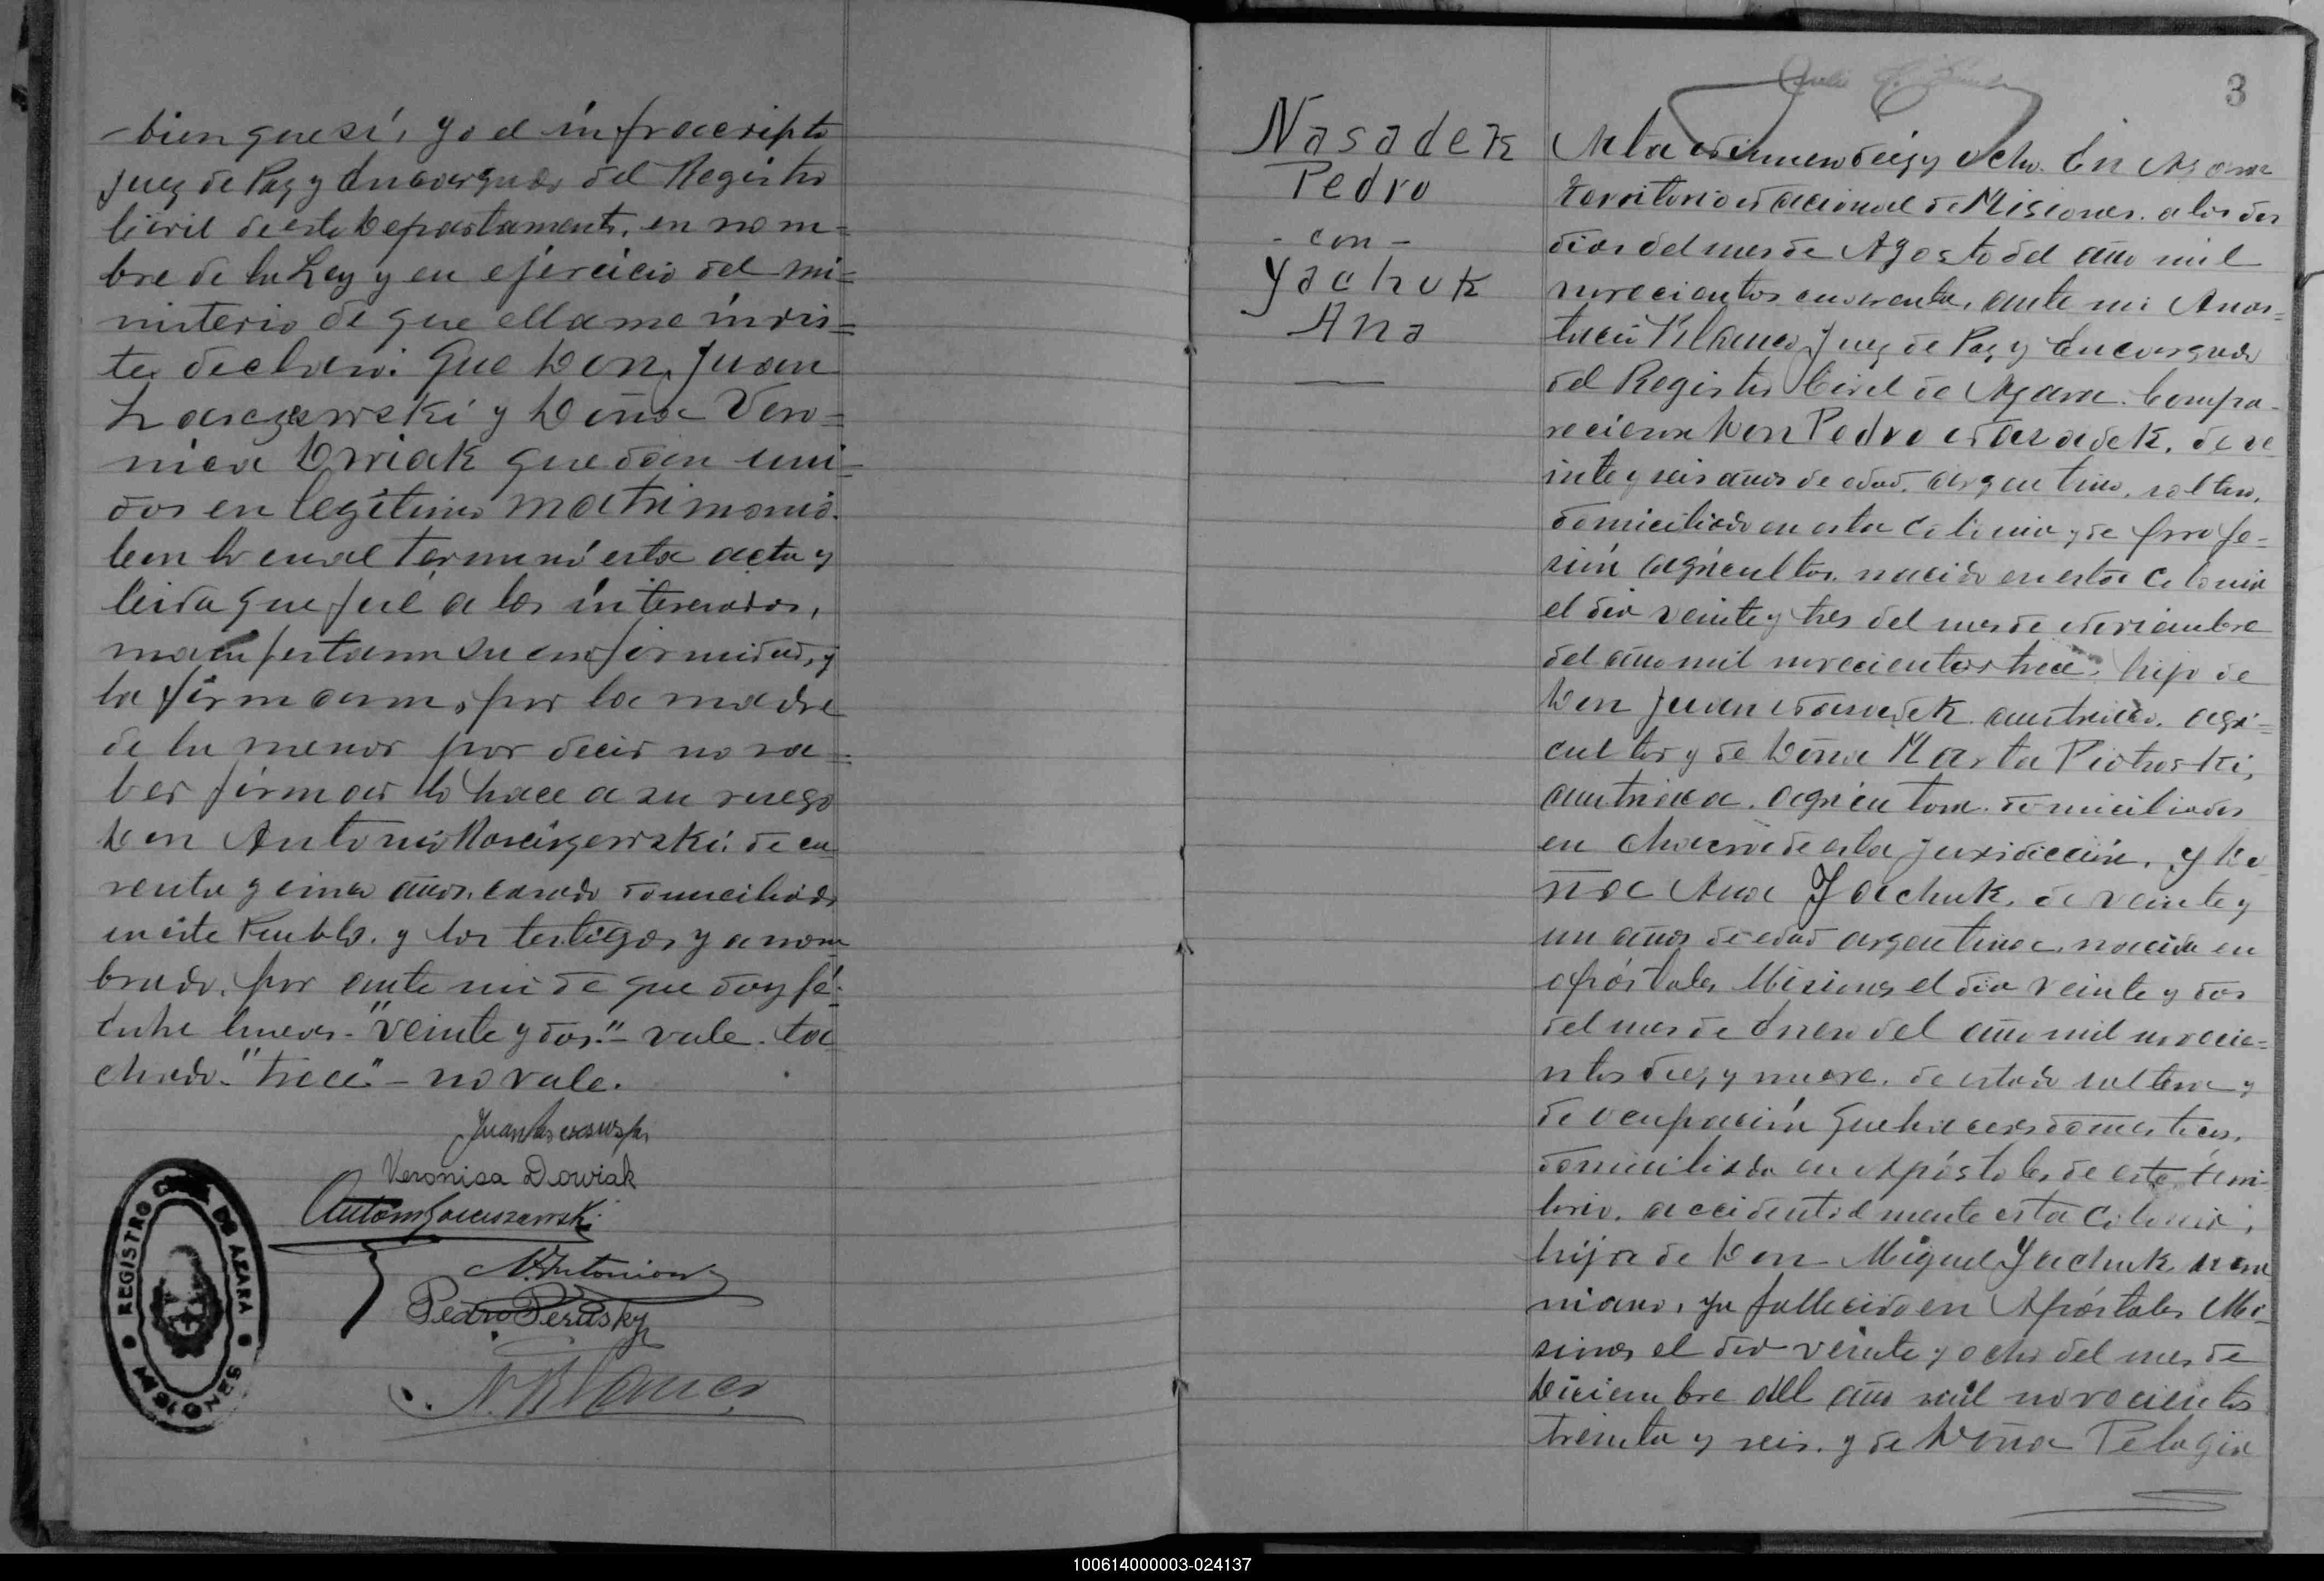 -bien que sí, yo el infraccripto
Juez de Paz y Encargado del Registro
Civil de este Departamento, en nom=
bre de la Ley y en ejercicio del mi=
nisterio de que ella me invis=
te declaró: Que Don Juan
y Doña Vero=
nica Dwiak quedan uni-
dos en legítimo matrimonio.
Con lo cual terminó esta acta y
leida que fué a los interesados,
manifestaron su conformidad, y
la firmaron, por la madre
de la menor por decir no sa=
ber firmar lo hace a su ruego
Don Antonio de cua
renta y cinco años, casado domiciliado
en este Pueblo. y los testigos ya nom
brado, por ante mi de que doy fé:
Entre lineas-"veinte y dos."-vale. ta
chado-"trece"-no vale.
Juan
Veronisa Dowiak
Antoni
N. Antoniow
Pedro Perusky
A. Blanco
REGISTRO CIVIL DE AZARA
MISIONES
3
Nasadek
Pedro
-con-
Yachuk
Ana
Acta número diez y ocho. En Azara
Territorio Nacional de Misiones. a los dos
dias del mes de Agosto del año mil
novecientos cuarenta, ante mi Anas=
tacio Blanco, Juez de Paz y Encargado
del Registro Civil de Azara. Compa-
recieron Don Pedro Nasadek, de ve
inte y seis años de edad, argentino, soltero,
domiciliado en esta Colonia y de profe=
sión agricultor, nacido en esta Colonia
el dia veinte y tres del mes de Noviembre
del año mil novecientos trece, hijo de
Don Juan Nasadek austriaco, agri=
cultor y de Doña Marta Piotroski,
austriaca. agricultora. domiciliados
en chacra de esta jurisdicción, y Do
ña Ana Yachuk, de veinte y
un años de edad argentina, nacida en
apóstoles Misiones el dia veinte y dos
del mes de Enero del año mil novecie=
ntos diez y nueve. de estado soltera y
de ocupación quehaceres domesticos,
domiciliada en Apóstoles de este terri-
torio, accidentalmente esta Colonia,
hija de Don Miguel Yachuk,
niano, ya fallecido en Apóstoles Mi-
siones el dia veinte y ocho del mes de
Diciembre del año mil novecientos
treinta y seis. y de Doña Pelagia
100614000003-024137